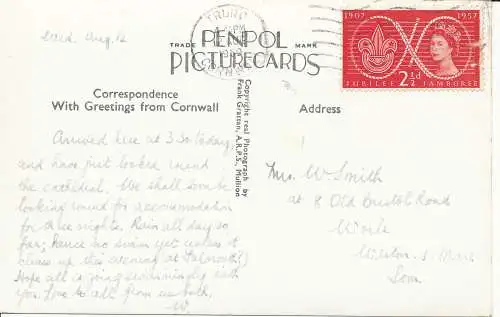 Aug. 12
TRURO
CORNWALL
1907 1957
2½d
JUBILEE JAMBOREE
TRADE PENPOL MARK
PICTURECARDS
Correspondence
With Greetings from Cornwall
Address
Copyright real Photograph by
Frank Grattan, A.R.P.S., Mullion
Arrived here at 3.30 today,
and have just looked round
the cathedral. We shall soon be
looking round for accommodation
for three nights. Rain all day so
far; hence no swim yet unless it
clears up this evening at Falmouth(?)
Hope all is going swimmingly with
you. Love to all from us both.
W.
Mrs. W. Smith
at 8 Old Bristol Road
Worle
Weston-S-Mare
Som.